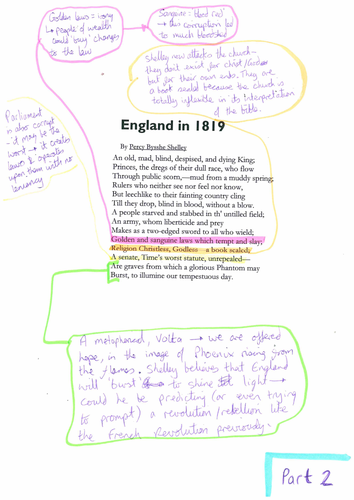 Golden laws = irony
↳ people of wealth
could 'buy' changes
to the law
Sanguine: 'blood red'
→ this corruption led
to much bloodshed
Shelley now attacks the church—
they don't exist for christ/God
but for their own ends. They are
a book sealed because the church is
totally inflexible in its interpretation
of the bible.
Parliament
is also corrupt
- it may be the
worst → it creates
laws &
upon them with no
leniency
England in 1819
By Percy Bysshe Shelley
An old, mad, blind, despised, and dying King;
Princes, the dregs of their dull race, who flow
Through public scorn,—mud from a muddy spring;
Rulers who neither see nor feel nor know,
But leechlike to their fainting country cling
Till they drop, blind in blood, without a blow.
A people starved and stabbed in th' untilled field;
An army, whom liberticide and prey
Makes as a two-edged sword to all who wield;
Golden and sanguine laws which tempt and slay;
Religion Christless, Godless—a book sealed;
A senate, Time's worst statute, unrepealed—
Are graves from which a glorious Phantom may
Burst, to illumine our tempestuous day.
A metaphorical, Volta → we are offered
hope, in the image of Phoenix rising from
the flames. Shelley believes that England
will 'burst' to shine light →
could he be predicting (or even trying
to prompt) a revolution/rebellion like
the French Revolution previously.
Part 2